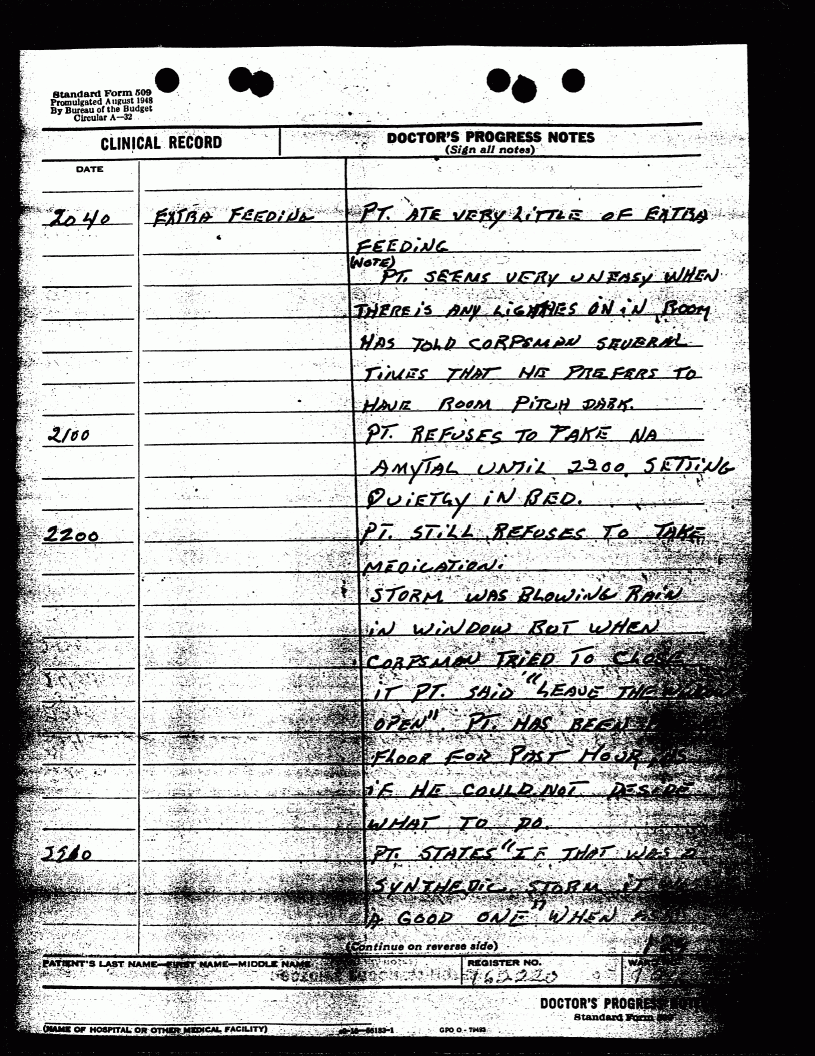 Standard Form 509
Promulgated August 1948
By Bureau of the Budget
Circular A—32
CLINICAL RECORD
DOCTOR'S PROGRESS NOTES
(Sign all notes)
DATE
2040 EXTRA FEEDING PT. ATE VERY LITTLE OF EXTRA
FEEDING
(NOTE)
PT. SEEMS VERY UNEASY WHEN
THERE IS ANY LIGHTES ON IN ROOM
HAS TOLD CORPSMAN SEVERAL
TIMES THAT HE PREFERS TO
HAVE ROOM PITCH DARK.
2100 PT. REFUSES TO TAKE NA
AMYTAL UNTIL 2200. SETTING
QUIETLY IN BED.
2200 PT. STILL REFUSES TO TAKE
MEDICATION.
STORM WAS BLOWING RAIN
IN WINDOW BUT WHEN
CORPSMAN TRIED TO CLOSE
IT PT. SAID "LEAVE THE WINDOW
OPEN". PT. HAS BEEN
FLOOR FOR PAST HOUR AS
IF HE COULD NOT DESIDE
WHAT TO DO.
PT. STATES "IF THAT WAS A
SYNTHEDIC STORM IT WAS
A GOOD ONE" WHEN
(Continue on reverse side)
PATIENT'S LAST NAME—FIRST NAME—MIDDLE NAME
REGISTER NO.
162220
DOCTOR'S PROGRESS NOTES
Standard Form 509
(NAME OF HOSPITAL OR OTHER MEDICAL FACILITY)
GPO